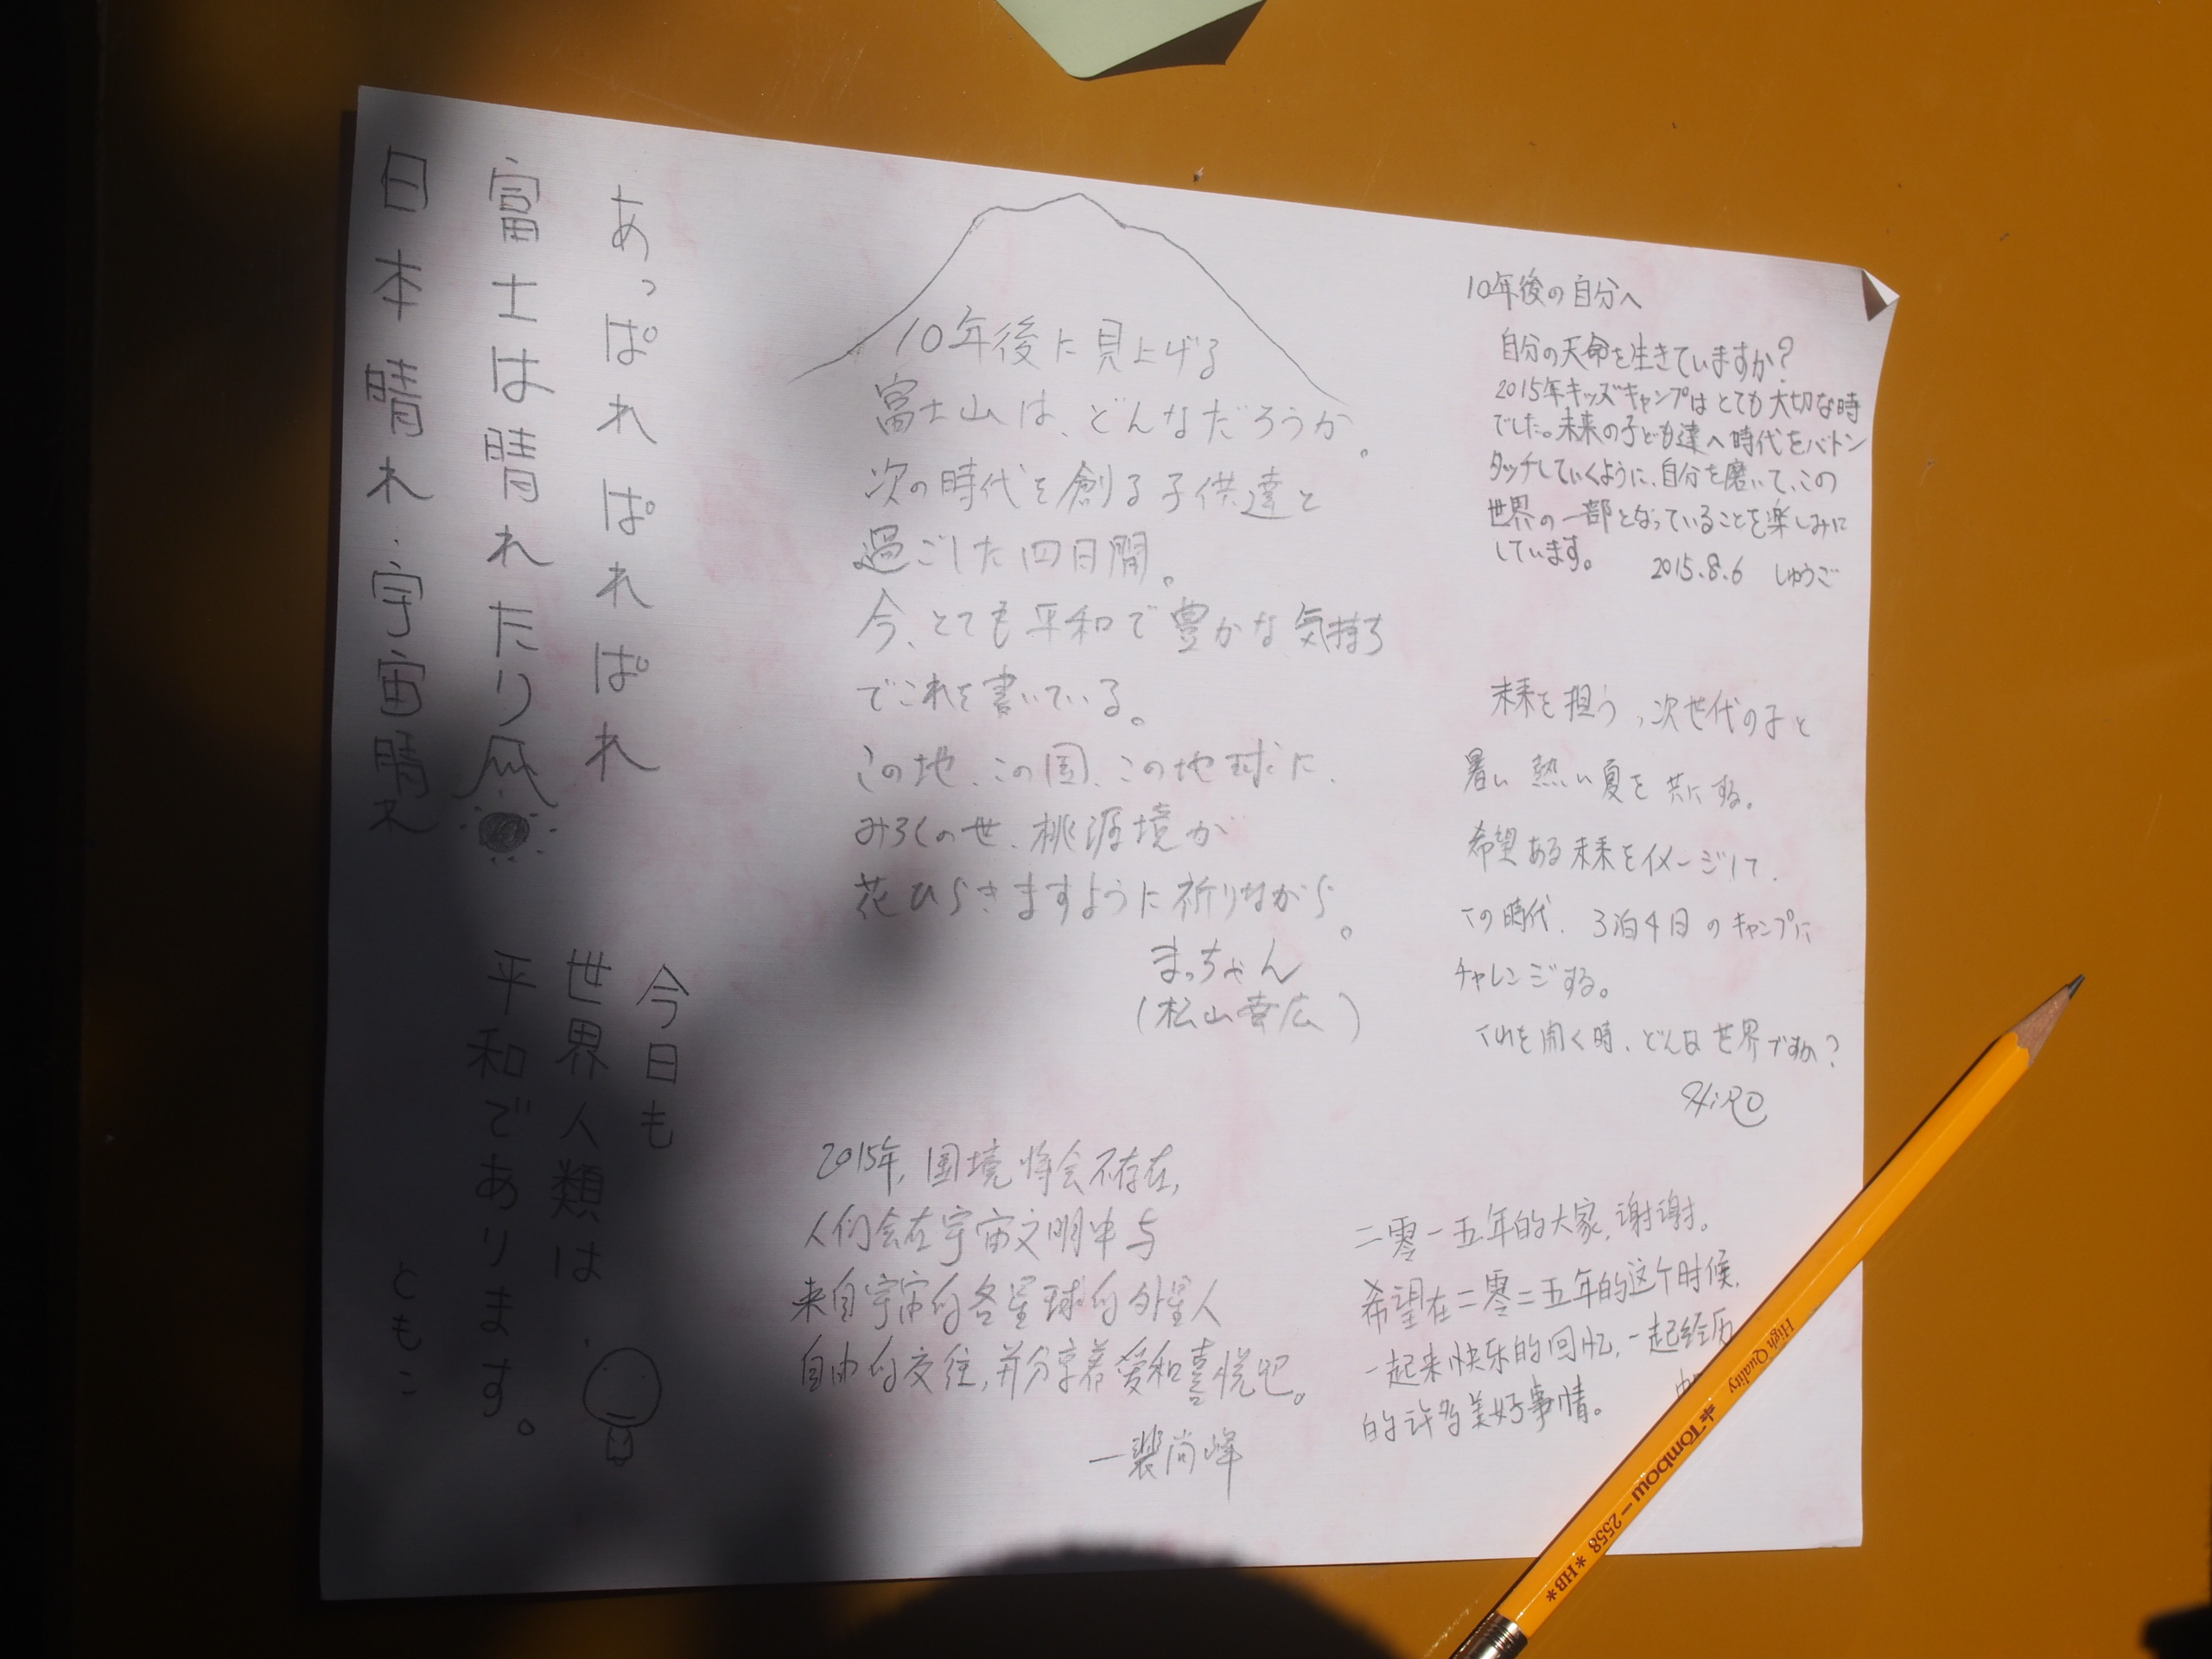 あっぱれぱれぱれ
富士は晴れたり
日本晴れ 宇宙晴れ
今日も
世界人類は
平和であります。
ともこ
10年後に見上げる
富士山は、どんなだろうか。
次の時代を創る子供達と
過ごした四日間。
今、とても平和で豊かな気持ち
でこれを書いている。
この地、この国、この地球に、
みろくの世、桃源境が
花ひらきますように祈りながら。
まっちゃん
(松山幸広)
10年後の自分へ
自分の天命を生きていますか?
2015年キッズキャンプはとても大切な時
でした。未来の子ども達へ時代をバトン
タッチしていくように、自分を磨いて、この
世界の一部となっていることを楽しみに
しています。
2015.8.6 しゅうご
未来を担う、次世代の子と
暑い 熱い夏を共にする。
希望ある未来をイメージして、
この時代、3泊4日のキャンプに
チャレンジする。
これを開く時、どんな世界ですか?
HiRO
2015年,国境将会不存在,
人们会在宇宙文明中与
来自宇宙的各星球的外星人
自由的交往,并分享着爱和喜悦吧。
一裴尚峰
二零一五年的大家,谢谢。
希望在二零二五年的这个时候,
一起来快乐的回忆,一起经历
的许多美好事情。
High Quality
Tombow-2558*HB*